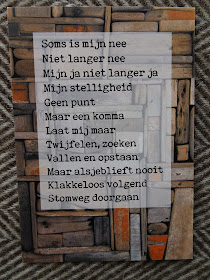 Soms is mijn nee
Niet langer nee
Mijn ja niet langer ja
Mijn stelligheid
Geen punt
Maar een komma
Laat mij maar
Twijfelen, zoeken
Vallen en opstaan
Maar alsjeblieft nooit
Klakkeloos volgend
Stomweg doorgaan